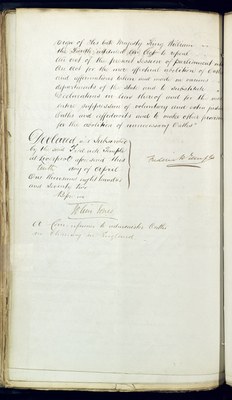 reign of His late Majesty King William
the Fourth intituled "An Act to repeal
An Act of the present Session of parliament intituled
An Act for the more effectual abolition of Oaths
and affirmations taken and made in various
departments of the State and to substitute
Declarations in lieu thereof and for the more
entire suppression of voluntary and extra judicial
Oaths and affidavits and to make other provisions
for the abolition of unnecessary Oaths"
Declared and Subscribed
by the said
at Liverpool aforesaid this
day of April
One thousand eight hundred
and Seventy two
Before me
A Commissioner to administer Oaths
in Chancery in England